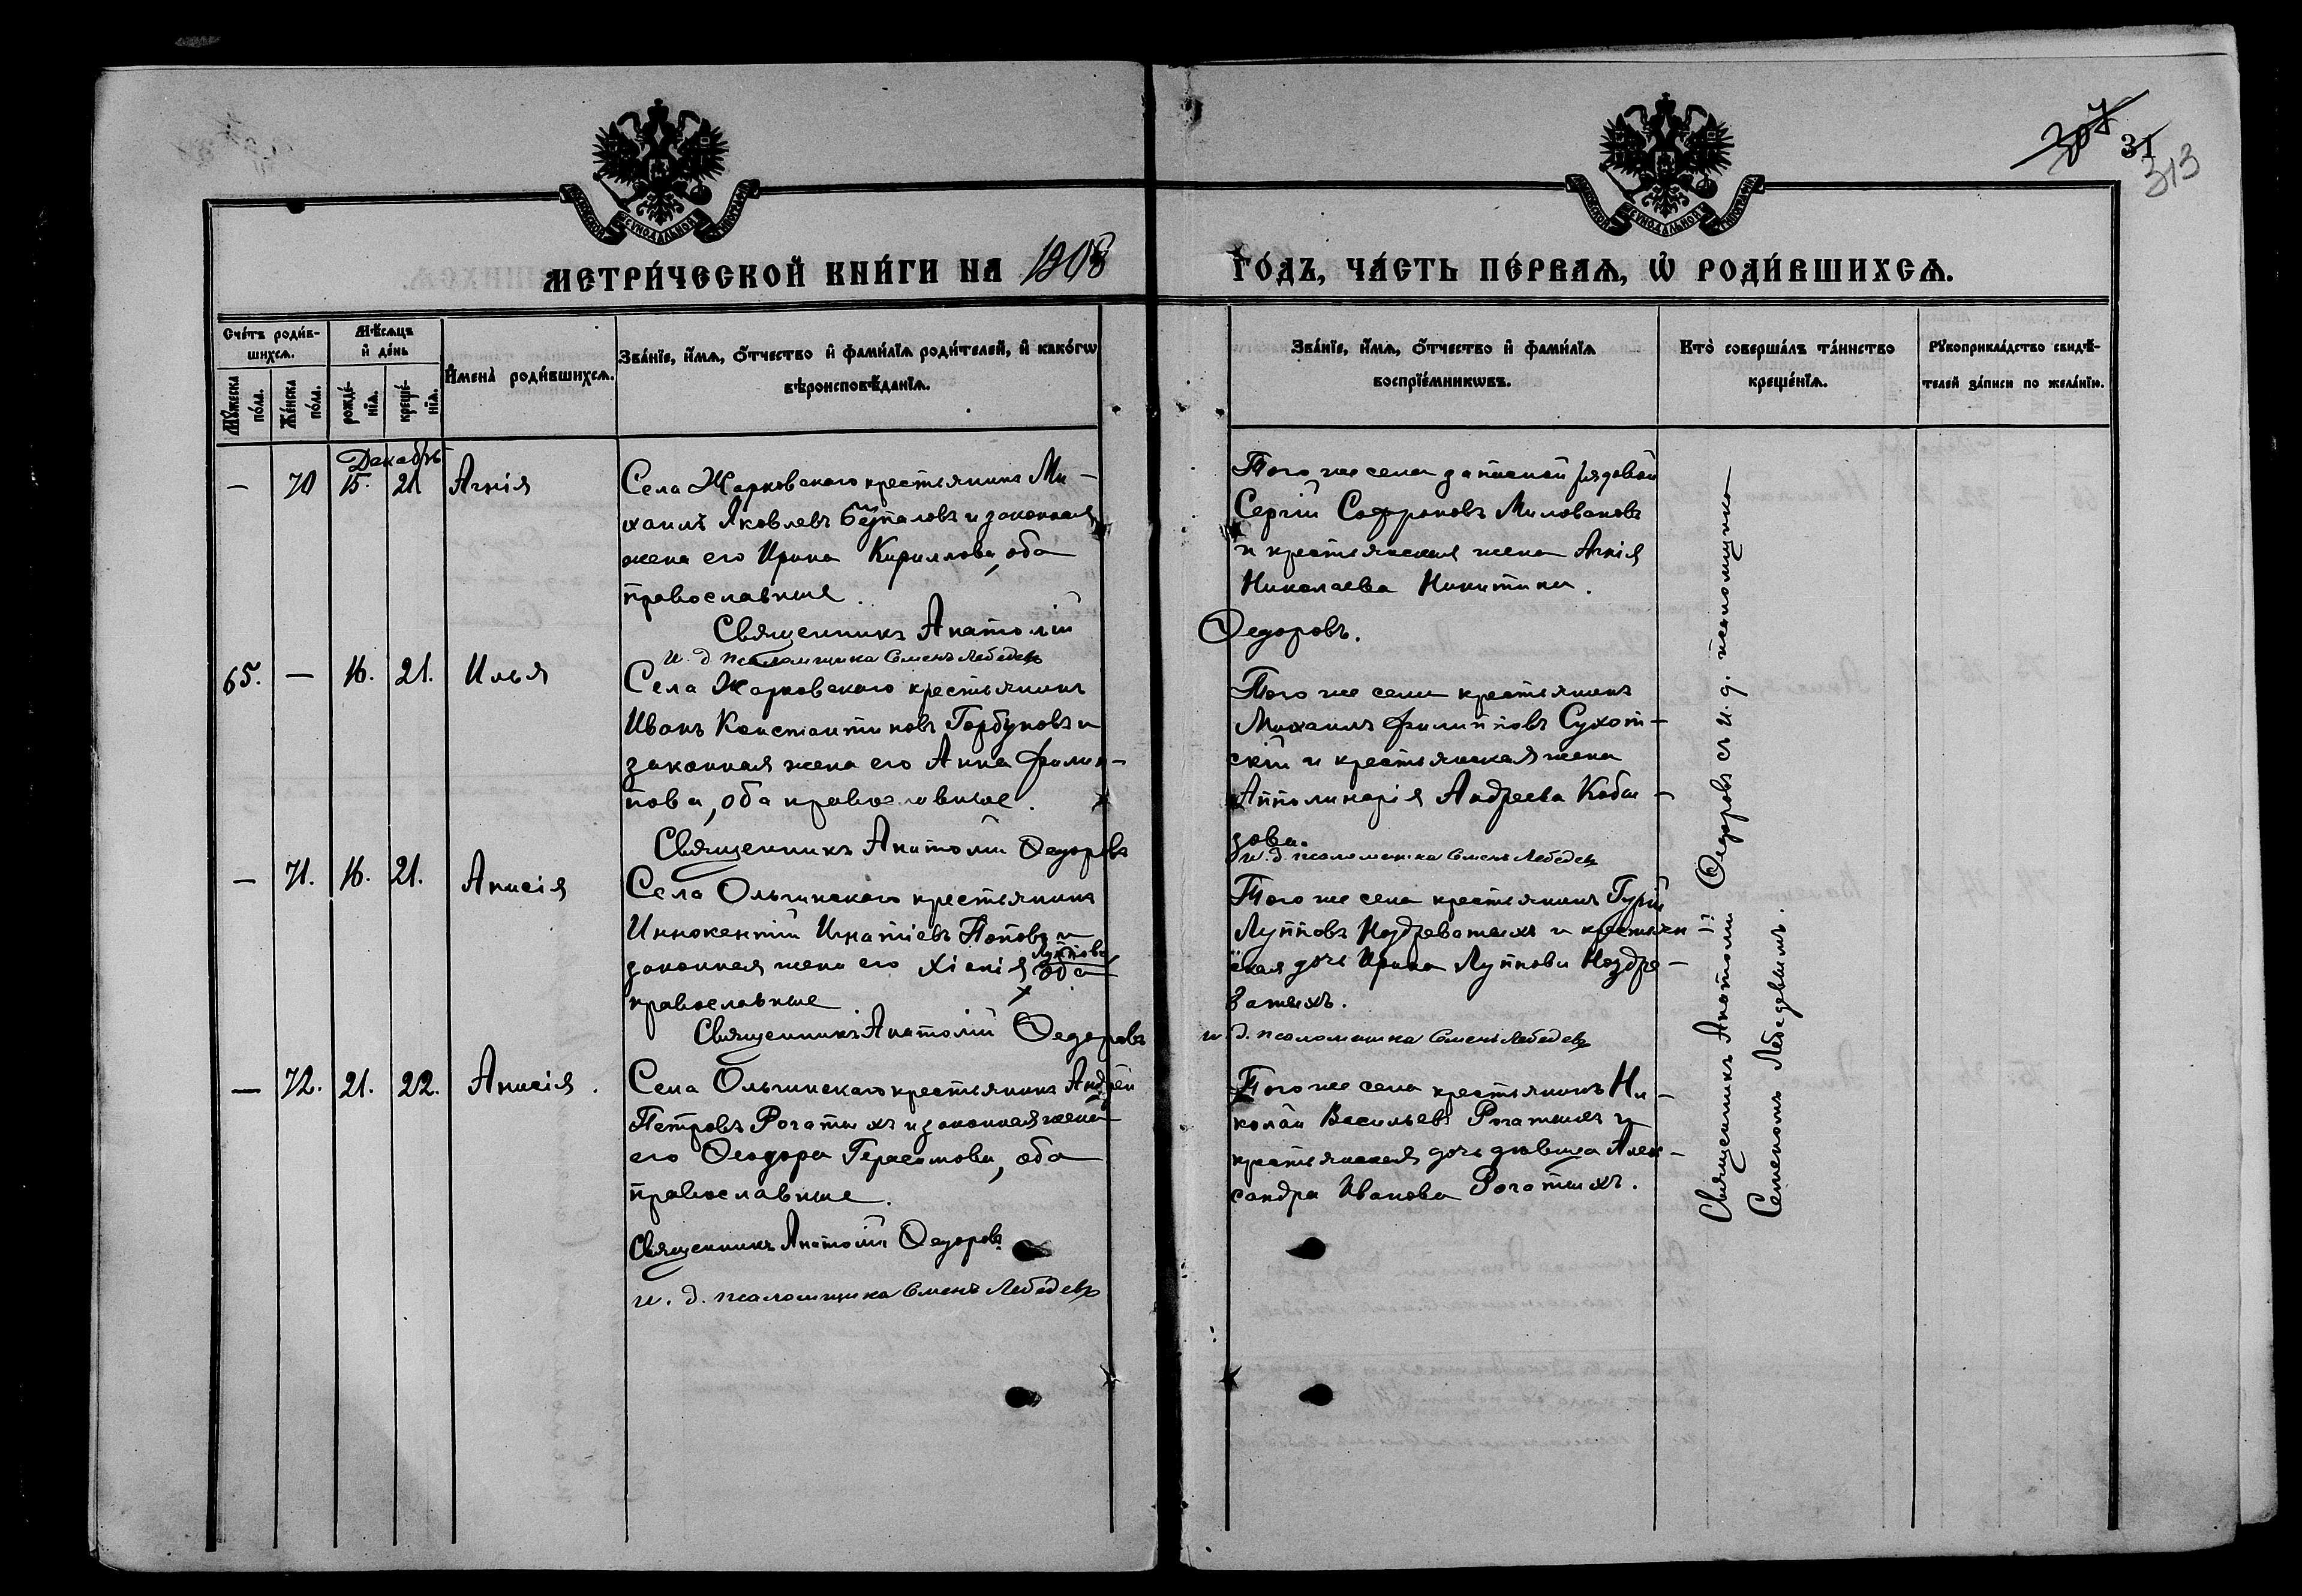 307 31
313
МЕТРИ́ЧЕСКОЙ КНИ́ГИ НА 1908 ГО́ДЪ, ЧА́СТЬ ПЕ́РВАѦ, Ѡ҆ РОДИ́ВШИХСѦ.
Сче́тъ роди́в-
шихсѧ.
Мꙋ́жеска по́ла.
Же́нска по́ла.
Мѣ́сѧцъ
и҆ де́нь
рожде́-
нїѧ.
креще́-
нїѧ.
И҆мена̀ роди́вшихсѧ.
Зва́нїе, и҆́мѧ, ѻ҆́тчество и҆ фами́лїѧ роди́телей, и҆ како́гѡ
вѣроисповѣ́данїѧ.
Зва́нїе, и҆́мѧ, ѻ҆́тчество и҆ фами́лїѧ
воспрїе́мникѡвъ.
Кто̀ соверша́лъ та́инство
креще́нїѧ.
Рꙋкоприкла́дство свидѣ́-
телей за́писи по жела́нїю.
Декабрь
— 70 15. 21 Агнія
Села Жарковскаго крестьянинъ Ми-
хаилъ Яковлевъ и законная
жена его Ирина Кириллова, оба
православные.
Священникъ Анатолій Ѳедоровъ.
и. д. псаломщика Семенъ Лебедевъ
Того же села запасной рядовой
Сергій Софроновъ Миловановъ
и крестьянская жена Агнія
Николаева Никитина.
65. — 16. 21. Илья
Села Жарковскаго крестьянинъ
Иванъ Константиновъ Горбуновъ и
законная жена его Анна Филип-
пова, оба православные.
Священникъ Анатолій Ѳедоровъ
Того же села крестьянинъ
Михаилъ Филипповъ Сухот-
скій и крестьянская жена
Апполинарія Андреева Кобы-
зова.
и. д. псаломщика Семенъ Лебедевъ
— 71. 16. 21. Анисія
Села Ольгинскаго крестьянинъ
Иннокентій Игнатіевъ Поповъ и
законная жена его Хіонія Луппова оба
православные
Священникъ Анатолій Ѳедоровъ
Того же села крестьянинъ Гурій
Лупповъ Ноздреватыхъ и крестьян-
ская дочь Ирина Луппова Ноздре-
ватыхъ.
и. д. псаломщика Семенъ Лебедевъ
— 72. 21. 22. Анисія.
Села Ольгинскаго крестьянинъ Андрей
Петровъ Рогатыхъ и законная жена
его Ѳеодора Герасимова, оба
православные.
Священникъ Анатолій Ѳедоровъ
и. д. псаломщика Семенъ Лебедевъ
Того же села крестьянинъ Ни-
колай Васильевъ Рогатыхъ и
крестьянская дочь дѣвица Алек-
сандра Иванова Рогатыхъ.
Священникъ Анатолій Ѳедоровъ съ и. д. псаломщика
Семеномъ Лебедевымъ.